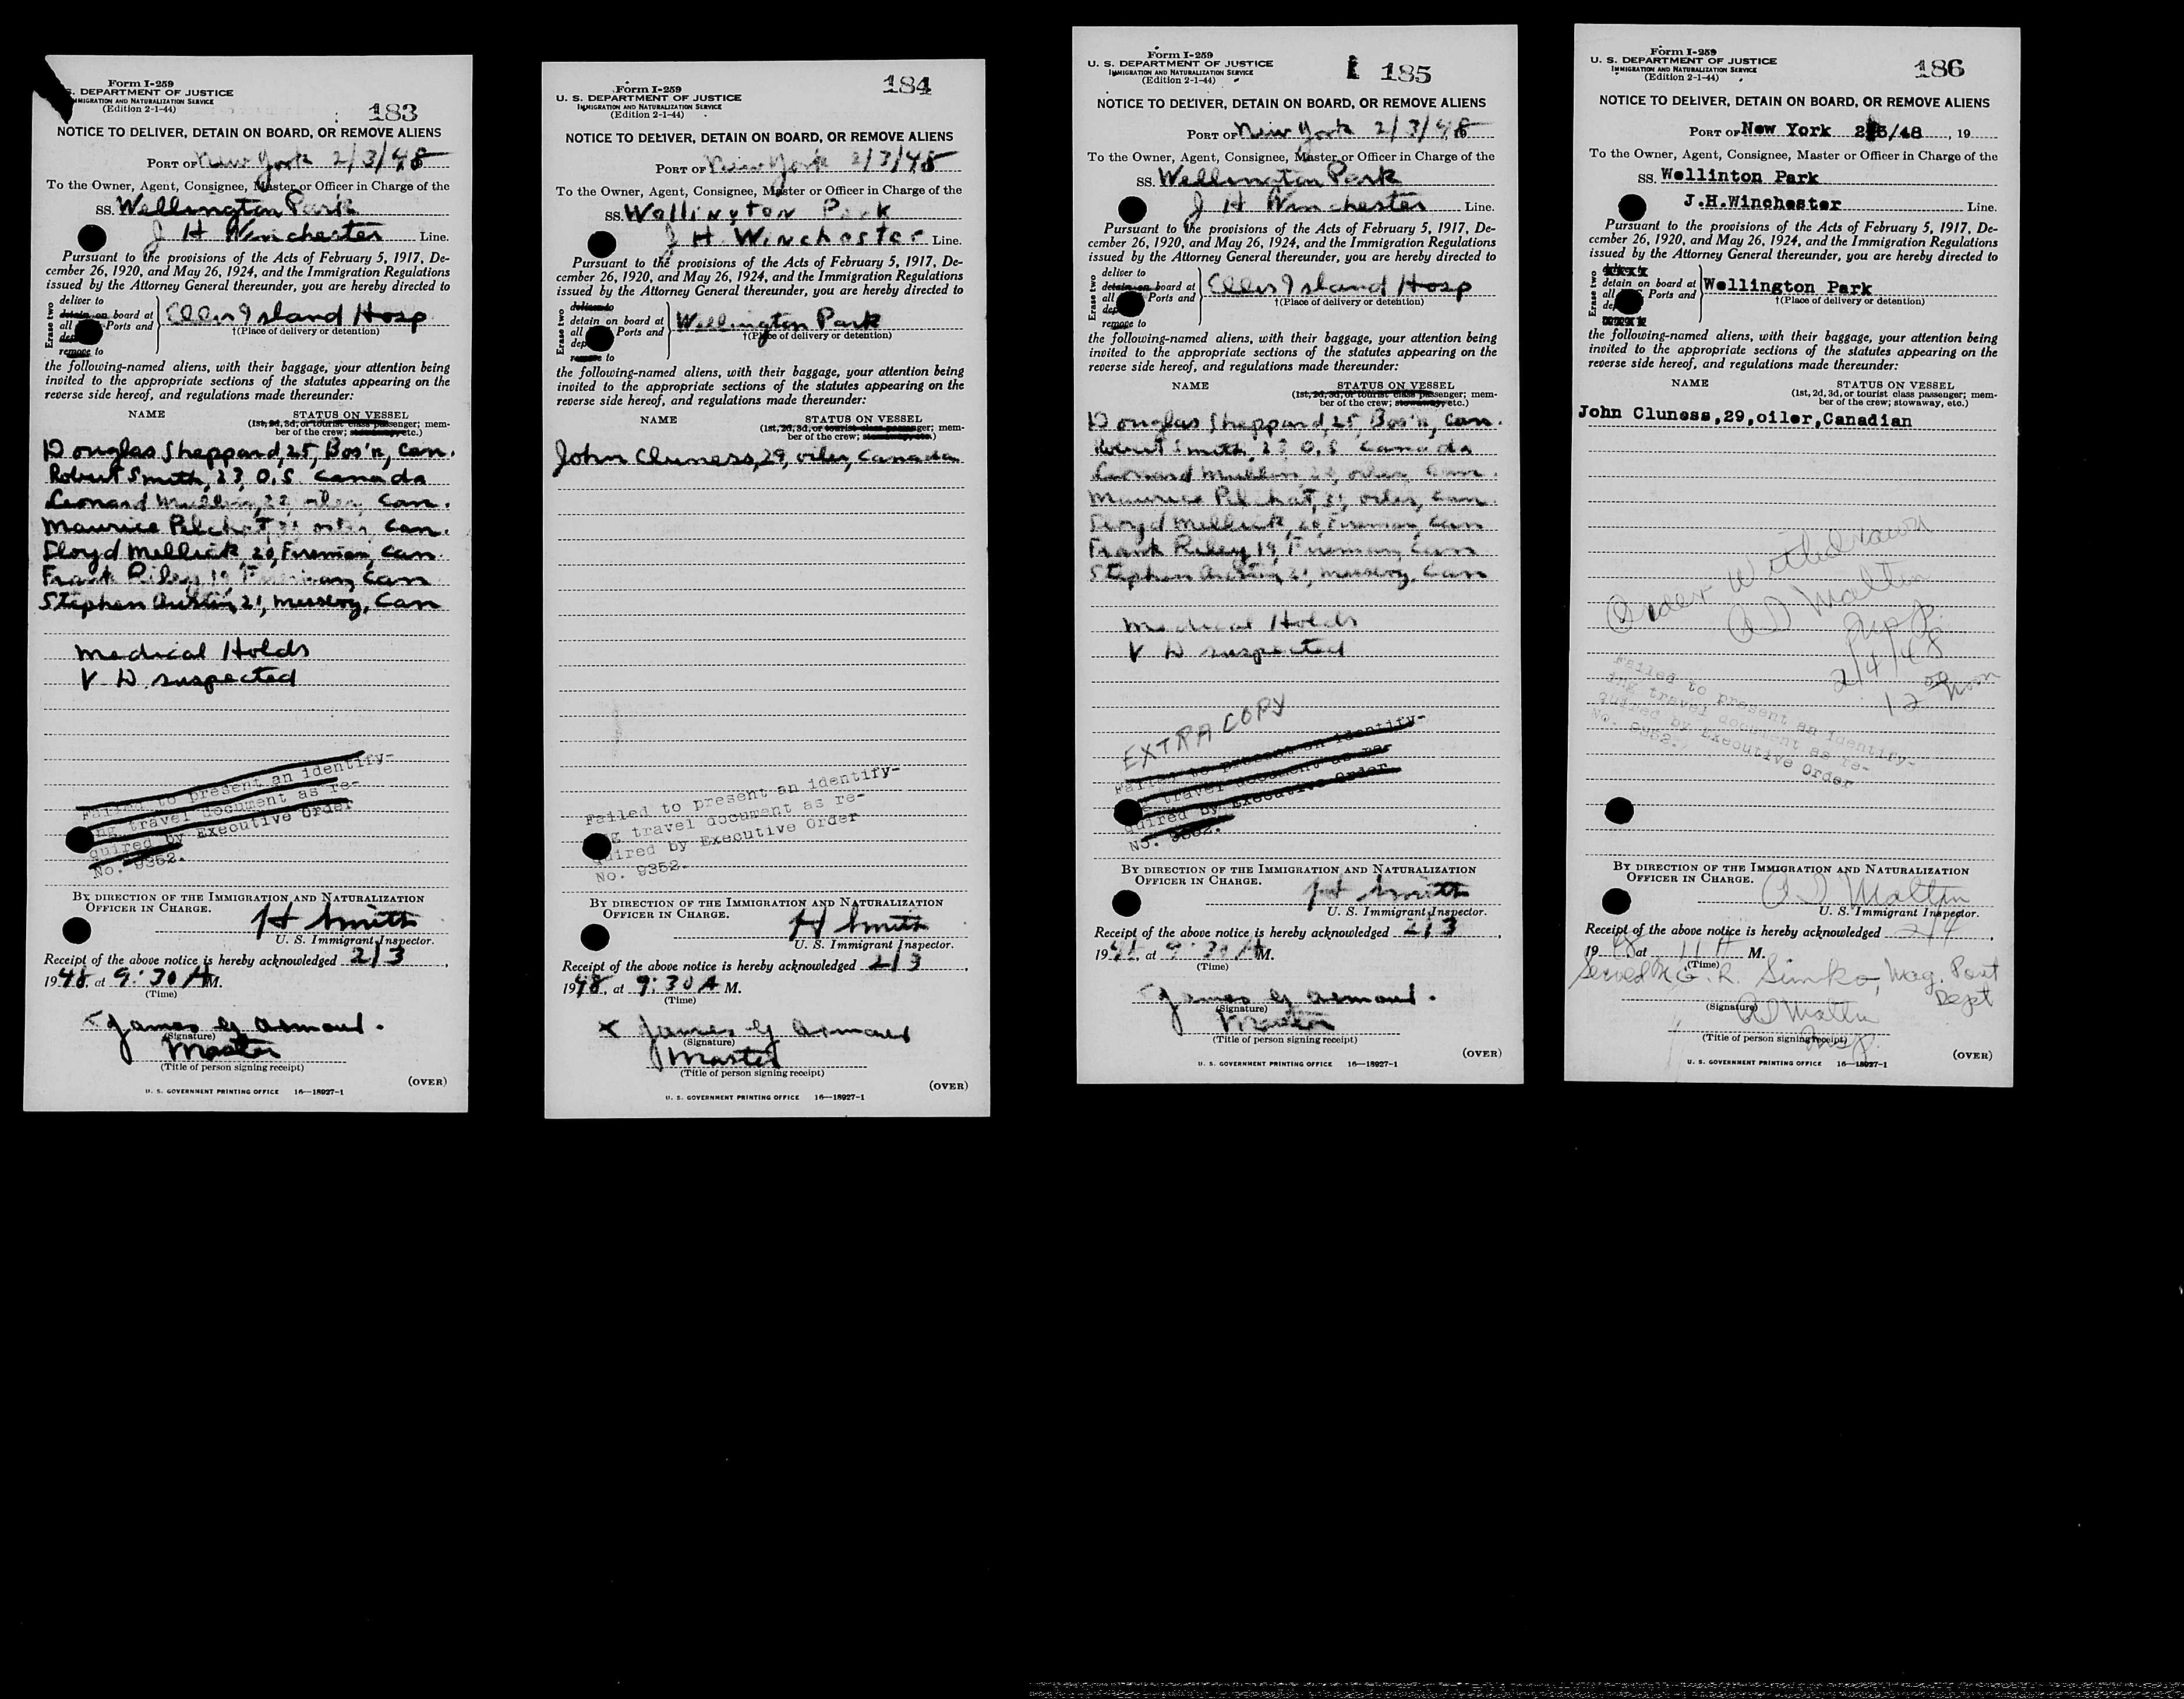 Form I-259
S. DEPARTMENT OF JUSTICE
IMMIGRATION AND NATURALIZATION SERVICE
(Edition 2-1-44)
183
NOTICE TO DELIVER, DETAIN ON BOARD, OR REMOVE ALIENS
PORT OF New York 2/3/48
To the Owner, Agent, Consignee, Master or Officer in Charge of the
SS. Wellington Park
J H Winchester Line.
Pursuant to the provisions of the Acts of February 5, 1917, De-
cember 26, 1920, and May 26, 1924, and the Immigration Regulations
issued by the Attorney General thereunder, you are hereby directed to
Erase two
deliver to
detain on board at
all Ports and
dep
remove to
Ellis Island Hosp
†(Place of delivery or detention)
the following-named aliens, with their baggage, your attention being
invited to the appropriate sections of the statutes appearing on the
reverse side hereof, and regulations made thereunder:
NAME STATUS ON VESSEL
(1st, 2d, 3d, or tourist class passenger; mem-
ber of the crew; stowaway, etc.)
Douglas Sheppard, 25, Bos'n, Can.
Robert Smith, 23, O.S. Canada
Leonard Mullin, oiler, Can.
Maurice Pilchat, oiler, Can.
Floyd Mellick, 20, Fireman, Can.
Frank Riley 19 Fireman, Can
Stephen Austin, 21, messboy, Can
Medical Holds
V D suspected
Failed to present an identify-
ing travel document as re-
quired by Executive Order
No. 9352.
BY DIRECTION OF THE IMMIGRATION AND NATURALIZATION
OFFICER IN CHARGE.
H Smith
U. S. Immigrant Inspector.
Receipt of the above notice is hereby acknowledged 2/3,
1948, at 9:30 A M.
(Time)
x James G
(Signature)
Master
(Title of person signing receipt)
(OVER)
U. S. GOVERNMENT PRINTING OFFICE 16—18927-1
Form I-259
U. S. DEPARTMENT OF JUSTICE
IMMIGRATION AND NATURALIZATION SERVICE
(Edition 2-1-44)
184
NOTICE TO DELIVER, DETAIN ON BOARD, OR REMOVE ALIENS
PORT OF New York 2/3/48
To the Owner, Agent, Consignee, Master or Officer in Charge of the
SS. Wellington Park
J H. Winchester Line.
Pursuant to the provisions of the Acts of February 5, 1917, De-
cember 26, 1920, and May 26, 1924, and the Immigration Regulations
issued by the Attorney General thereunder, you are hereby directed to
Erase two
deliver to
detain on board at
all Ports and
dep
remove to
Wellington Park
†(Place of delivery or detention)
the following-named aliens, with their baggage, your attention being
invited to the appropriate sections of the statutes appearing on the
reverse side hereof, and regulations made thereunder:
NAME STATUS ON VESSEL
(1st, 2d, 3d, or tourist class passenger; mem-
ber of the crew; stowaway, etc.)
John Cluness, 29, oiler, Canada
Failed to present an identify-
ing travel document as re-
quired by Executive Order
No. 9352.
BY DIRECTION OF THE IMMIGRATION AND NATURALIZATION
OFFICER IN CHARGE.
H Smith
U. S. Immigrant Inspector.
Receipt of the above notice is hereby acknowledged 2/3,
1948, at 9:30 A M.
(Time)
x James G
(Signature)
Master
(Title of person signing receipt)
(OVER)
U. S. GOVERNMENT PRINTING OFFICE 16—18927-1
Form I-259
U. S. DEPARTMENT OF JUSTICE
IMMIGRATION AND NATURALIZATION SERVICE
(Edition 2-1-44)
185
NOTICE TO DELIVER, DETAIN ON BOARD, OR REMOVE ALIENS
PORT OF New York 2/3/48
To the Owner, Agent, Consignee, Master or Officer in Charge of the
SS. Wellington Park
J H Winchester Line.
Pursuant to the provisions of the Acts of February 5, 1917, De-
cember 26, 1920, and May 26, 1924, and the Immigration Regulations
issued by the Attorney General thereunder, you are hereby directed to
Erase two
deliver to
detain on board at
all Ports and
dep
remove to
Ellis Island Hosp
†(Place of delivery or detention)
the following-named aliens, with their baggage, your attention being
invited to the appropriate sections of the statutes appearing on the
reverse side hereof, and regulations made thereunder:
NAME STATUS ON VESSEL
(1st, 2d, 3d, or tourist class passenger; mem-
ber of the crew; stowaway, etc.)
Douglas Sheppard, 25 Bos'n, Can.
Robert Smith, 23 O.S Canada
Leonard Mullin, oiler, Can.
Maurice Pilchat, oiler, Can.
Floyd Mellick, 20 Fireman, Can
Frank Riley 19, Fireman, Can
Stephen Austin, 21, messboy, Can
Medical Holds
V D suspected
EXTRA COPY
Failed to present an identify-
ing travel document as re-
quired by Executive Order
No. 9352.
BY DIRECTION OF THE IMMIGRATION AND NATURALIZATION
OFFICER IN CHARGE.
H Smith
U. S. Immigrant Inspector.
Receipt of the above notice is hereby acknowledged 2/3,
1948, at 9:30 A M.
(Time)
James G
(Signature)
Master
(Title of person signing receipt)
(OVER)
U. S. GOVERNMENT PRINTING OFFICE 16—18927-1
Form I-259
U. S. DEPARTMENT OF JUSTICE
IMMIGRATION AND NATURALIZATION SERVICE
(Edition 2-1-44)
186
NOTICE TO DELIVER, DETAIN ON BOARD, OR REMOVE ALIENS
PORT OF New York 2/3/48, 19
To the Owner, Agent, Consignee, Master or Officer in Charge of the
SS. Wellinton Park
J.H.Winchester Line.
Pursuant to the provisions of the Acts of February 5, 1917, De-
cember 26, 1920, and May 26, 1924, and the Immigration Regulations
issued by the Attorney General thereunder, you are hereby directed to
Erase two
detain on board at
all Ports and
dep
Wellington Park
†(Place of delivery or detention)
the following-named aliens, with their baggage, your attention being
invited to the appropriate sections of the statutes appearing on the
reverse side hereof, and regulations made thereunder:
NAME STATUS ON VESSEL
(1st, 2d, 3d, or tourist class passenger; mem-
ber of the crew; stowaway, etc.)
John Cluness,29,oiler,Canadian
Order Withdrawn
Insp.
2/4/48
12 noon
Failed to present an identify-
ing travel document as re-
quired by Executive Order
No. 9352.
BY DIRECTION OF THE IMMIGRATION AND NATURALIZATION
OFFICER IN CHARGE.
U. S. Immigrant Inspector.
Receipt of the above notice is hereby acknowledged 2/4,
1948 at 11 A M.
(Time)
Served Simko, Dept
(Signature)
Insp.
(Title of person signing receipt)
(OVER)
U. S. GOVERNMENT PRINTING OFFICE 16—18927-1